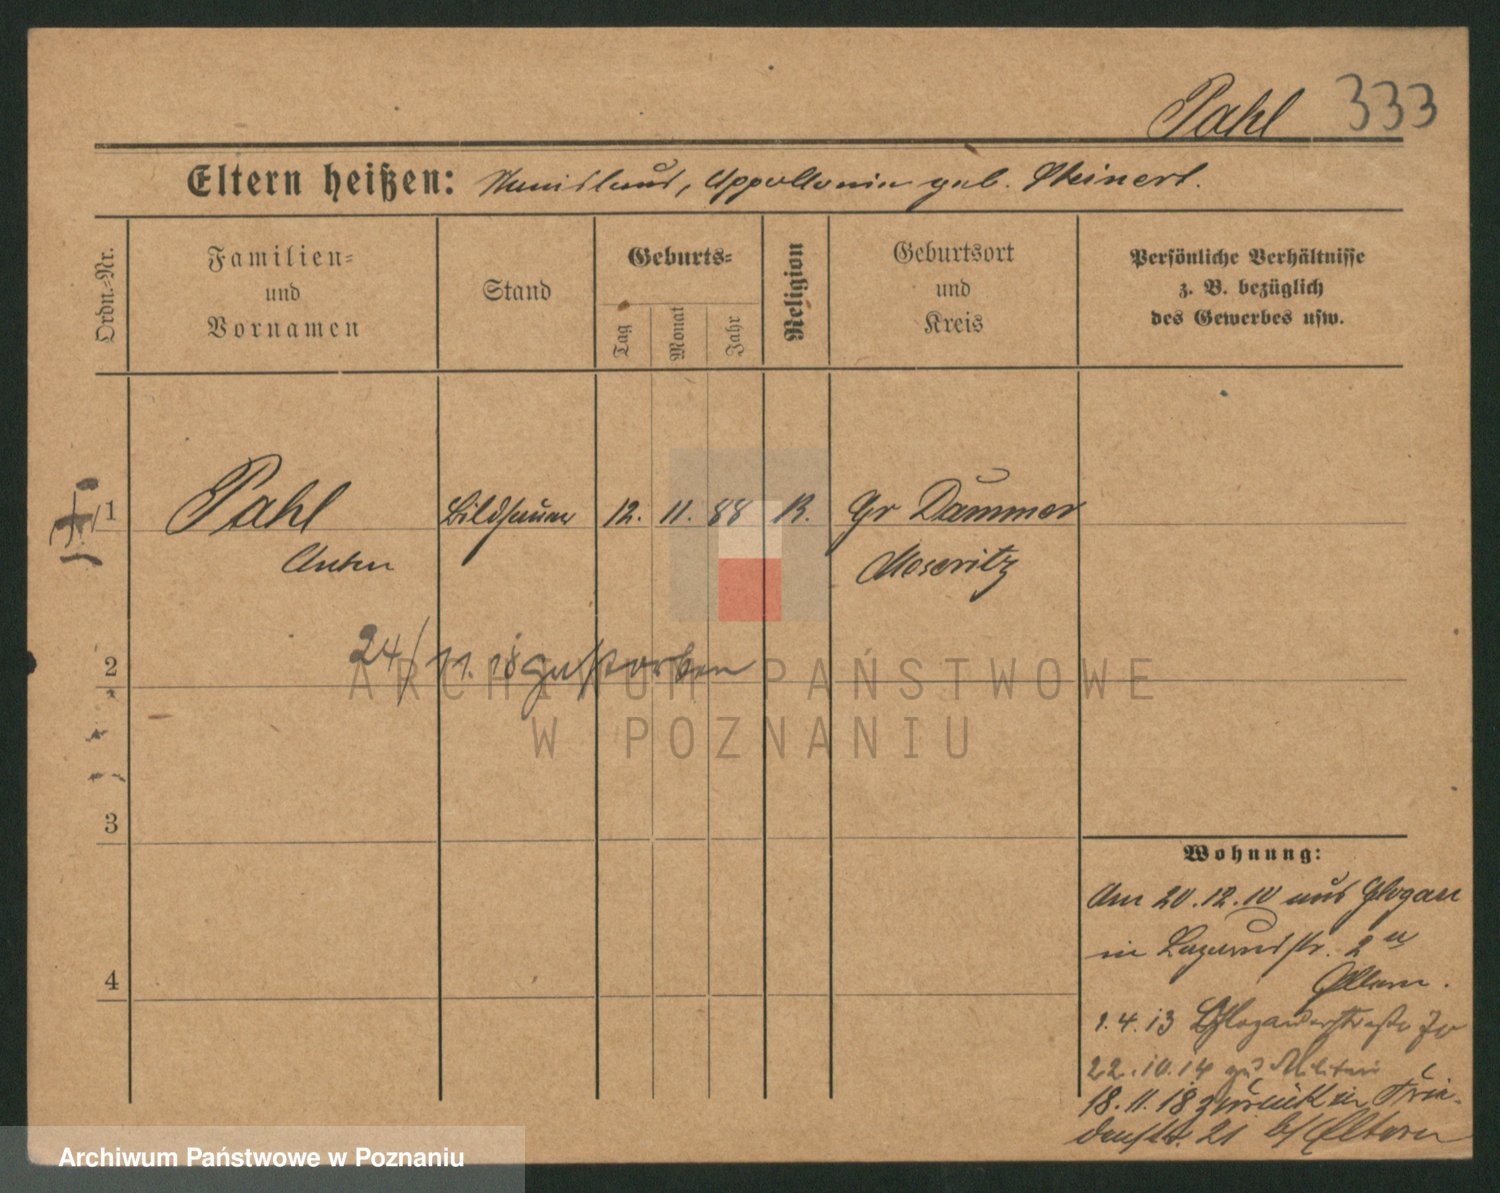 Pahl 333
Eltern heißen: Stanislaus, Appollonia geb. Steinert.
Ordn.-Nr.
Familien-
und
Vornamen
Stand
Geburts-
Tag
Monat
Jahr
Religion
Geburtsort
und
Kreis
Persönliche Verhältnisse
z. B. bezüglich
des Gewerbes usw.
1 Pahl Bildhauer 12. 11. 88 K. Gr Dammer
Anton Meseritz
24/11. 18 gestorben
2
3
4
ARCHIWUM PAŃSTWOWE
W POZNANIU
Wohnung:
Am 20.12.10 aus Glogau
in Lazarusstr. 2
Eltern.
1.4.13
22.10.14 zum Militär
18.11.18 zurück in Frie-
denstr. 21 b/Eltern
Archiwum Państwowe w Poznaniu